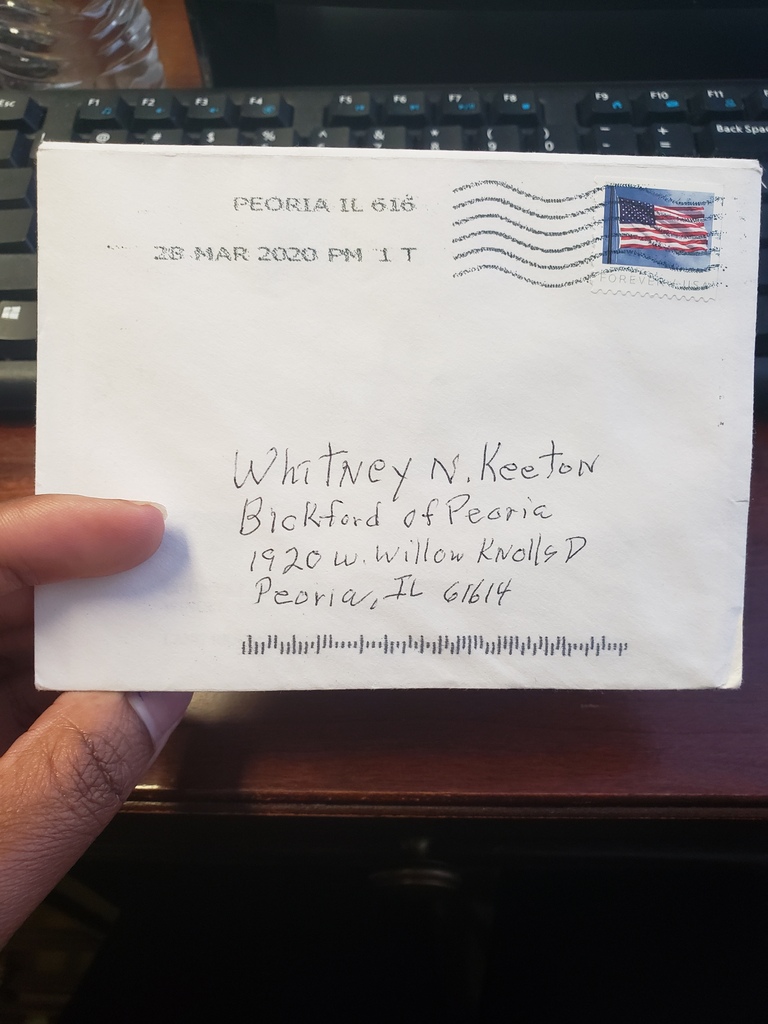 Esc F1 F2 F3 F4 F5 F6 F7 F8 F9 F10 F11
@ # $ % ^ & * ( ) - +
9 0 = Back Spac
PEORIA IL 616
28 MAR 2020 PM 1 T
FOREVER USA
Whitney N. Keeton
Bickford of Peoria
1920 W. Willow Knolls D
Peoria, IL 61614